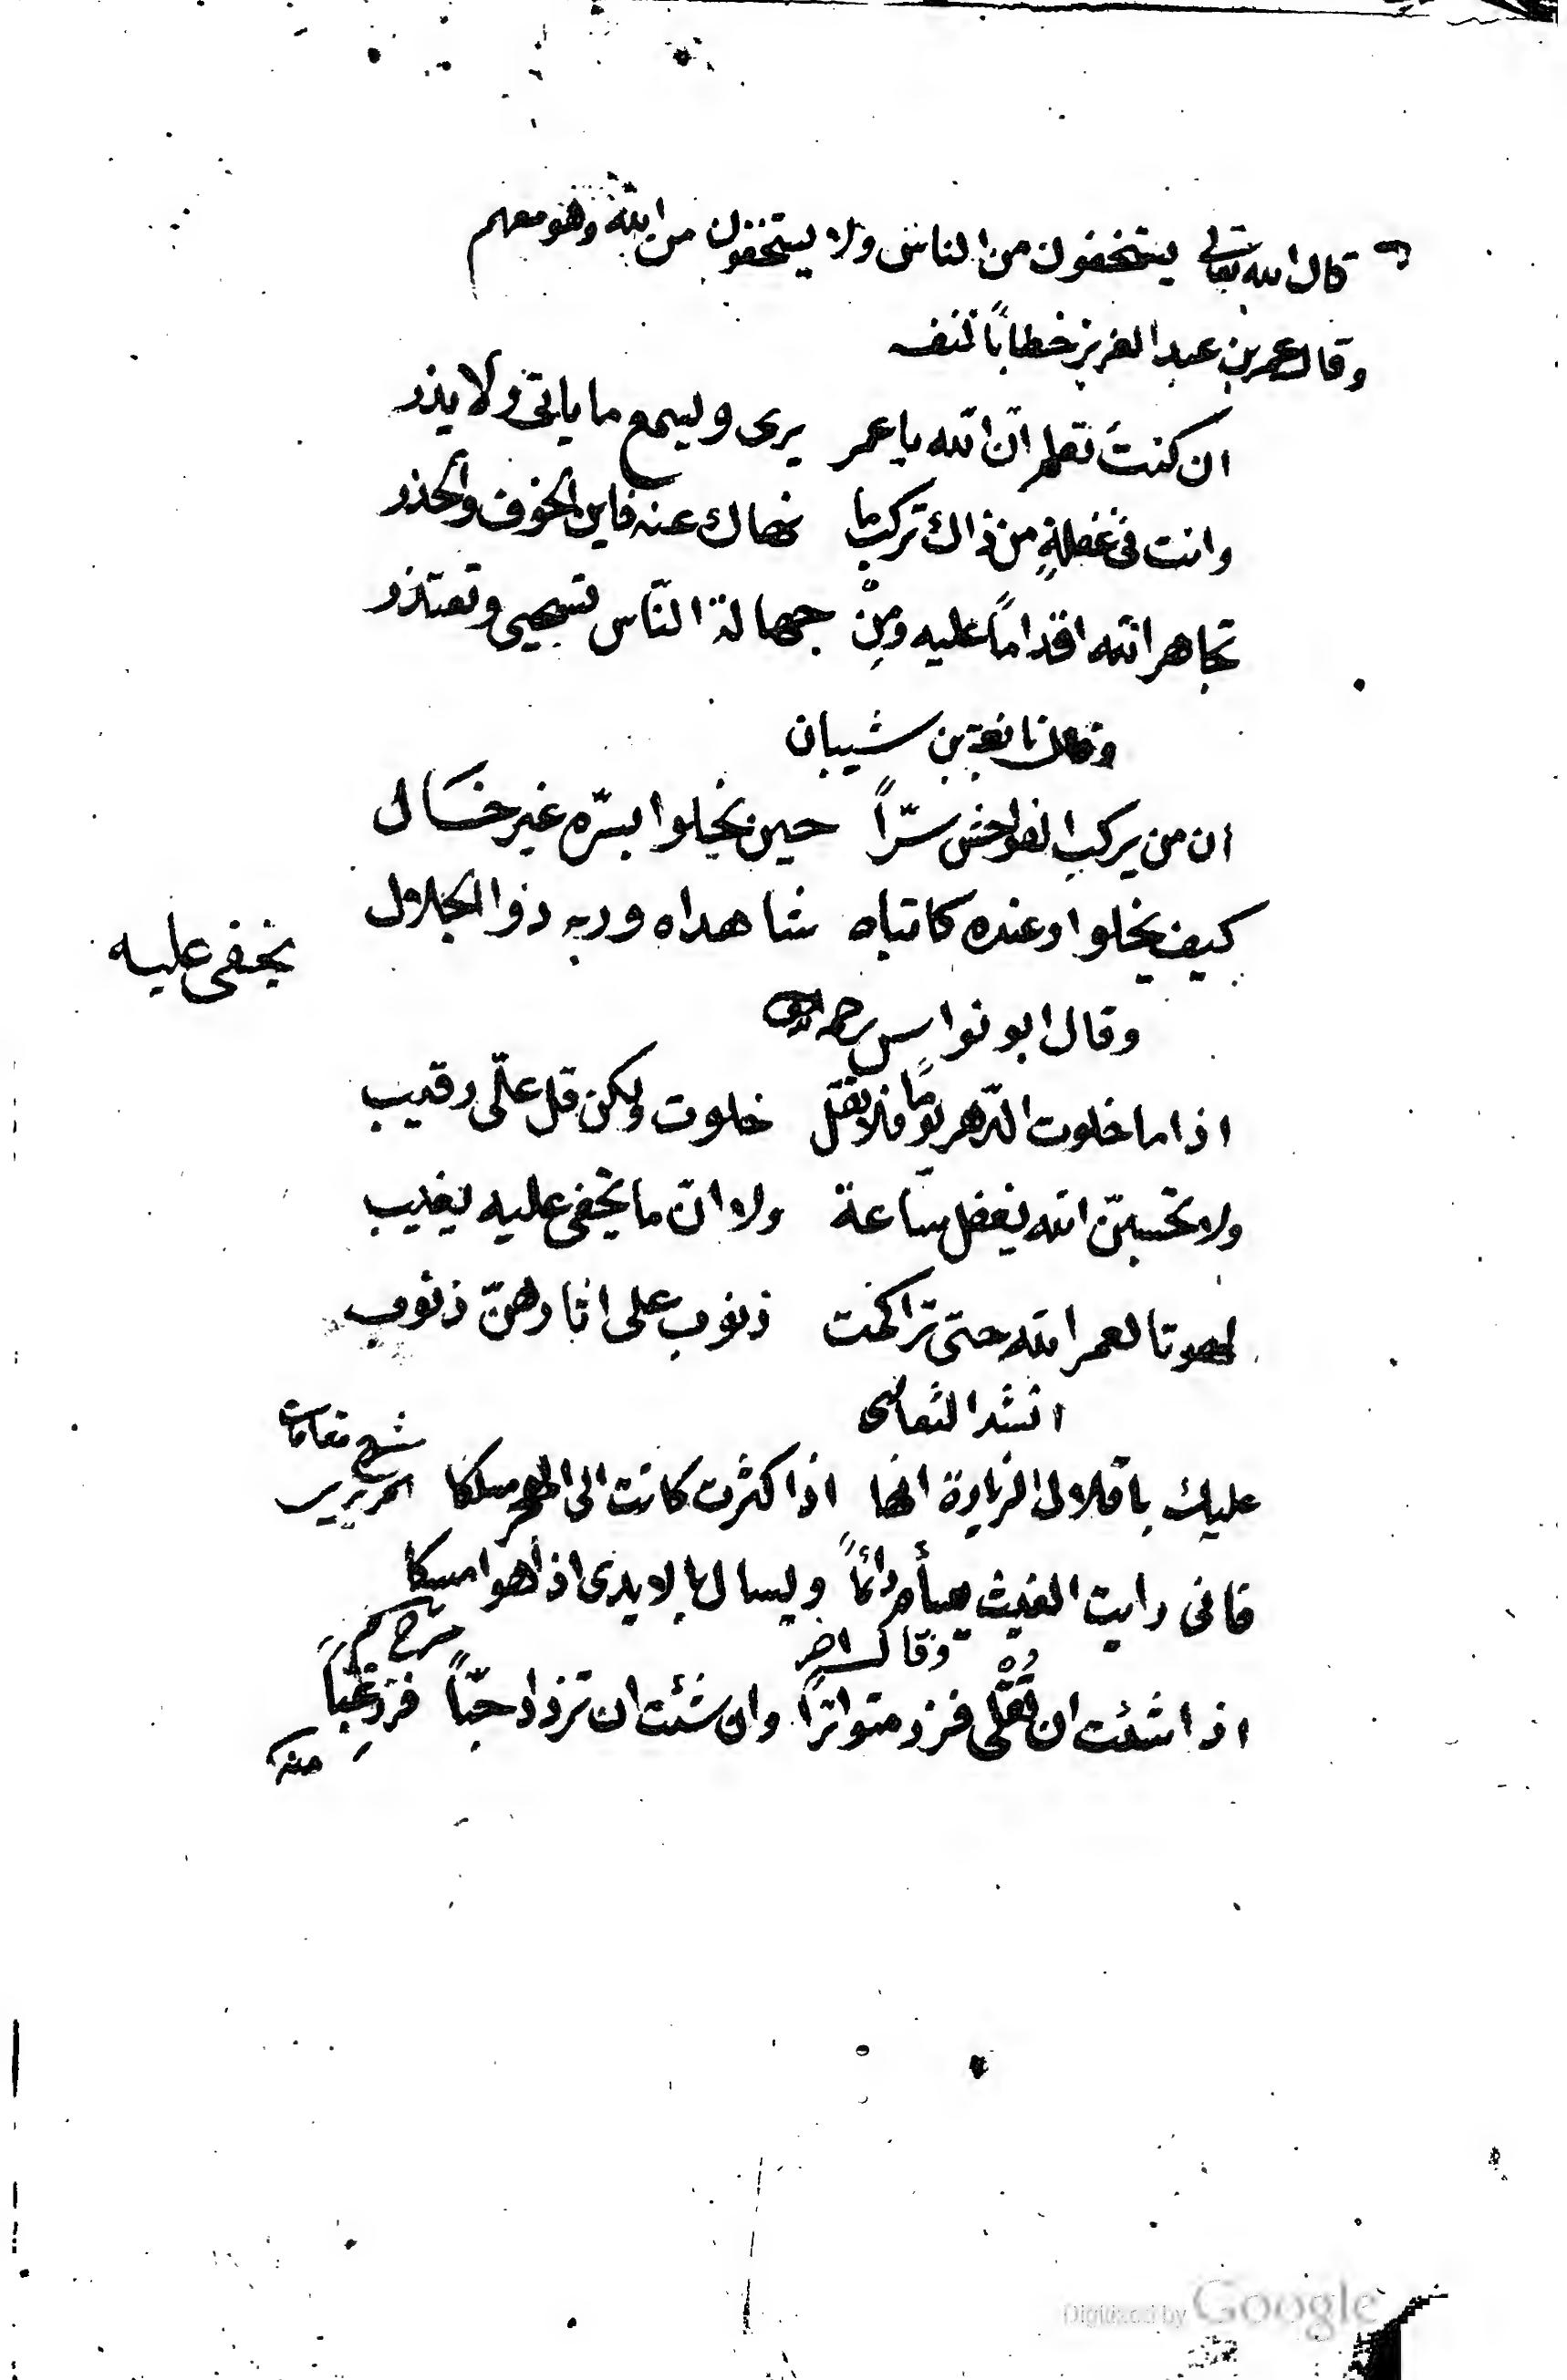 قال الله تعالى يستخفون من الناس ولا يستخفون من الله وهو معهم
وقال عمر بن عبد العزيز خطابًا لنفسه
ان كنتَ تعلم انّ الله يا عمر يرى ويسمع ما ياتى ولا يذر
وانت فى غفلةٍ من ذاك تركب ما نهاك عنه فاين الخوف والحذر
تجاهر الله اقدامًا عليه ومِنْ جهالة النّاس تستحيى وتعتذر
وقال نابغة بن شيبان
ان من يركب الفواحش سرّاً حين يخلوا بسرّه غير خال
كيف يخلوا وعنده كاتباه شاهداه وربه ذوا الجلال
يخفى عليه
وقال ابو نواس رحمه
اذا ما خلوت الدّهر يومًا فلا تقل خلوت ولكن قل علىّ رقيب
ولا تحسبنّ الله يغفل ساعة ولا انّ ما يخفى عليه يغيب
لهونا لعمر الله حتى تراكمت ذنوب على اثارهنّ ذنوب
انشد الثعالبى
شرح مقامات
عليك باقلال الزيارة انها اذا كثرت كانت الى الهجر مسلكا
الحريرى
فانى رايت الغيث يسأم دائمًا ويسال بالايدى اذا هو امسكا
وقال اخر
اذا شئت ان تُقْلى فزر متواترًا وان شئت ان تزداد حبّاً فزر غِبّاً
منه
Digitized by Google